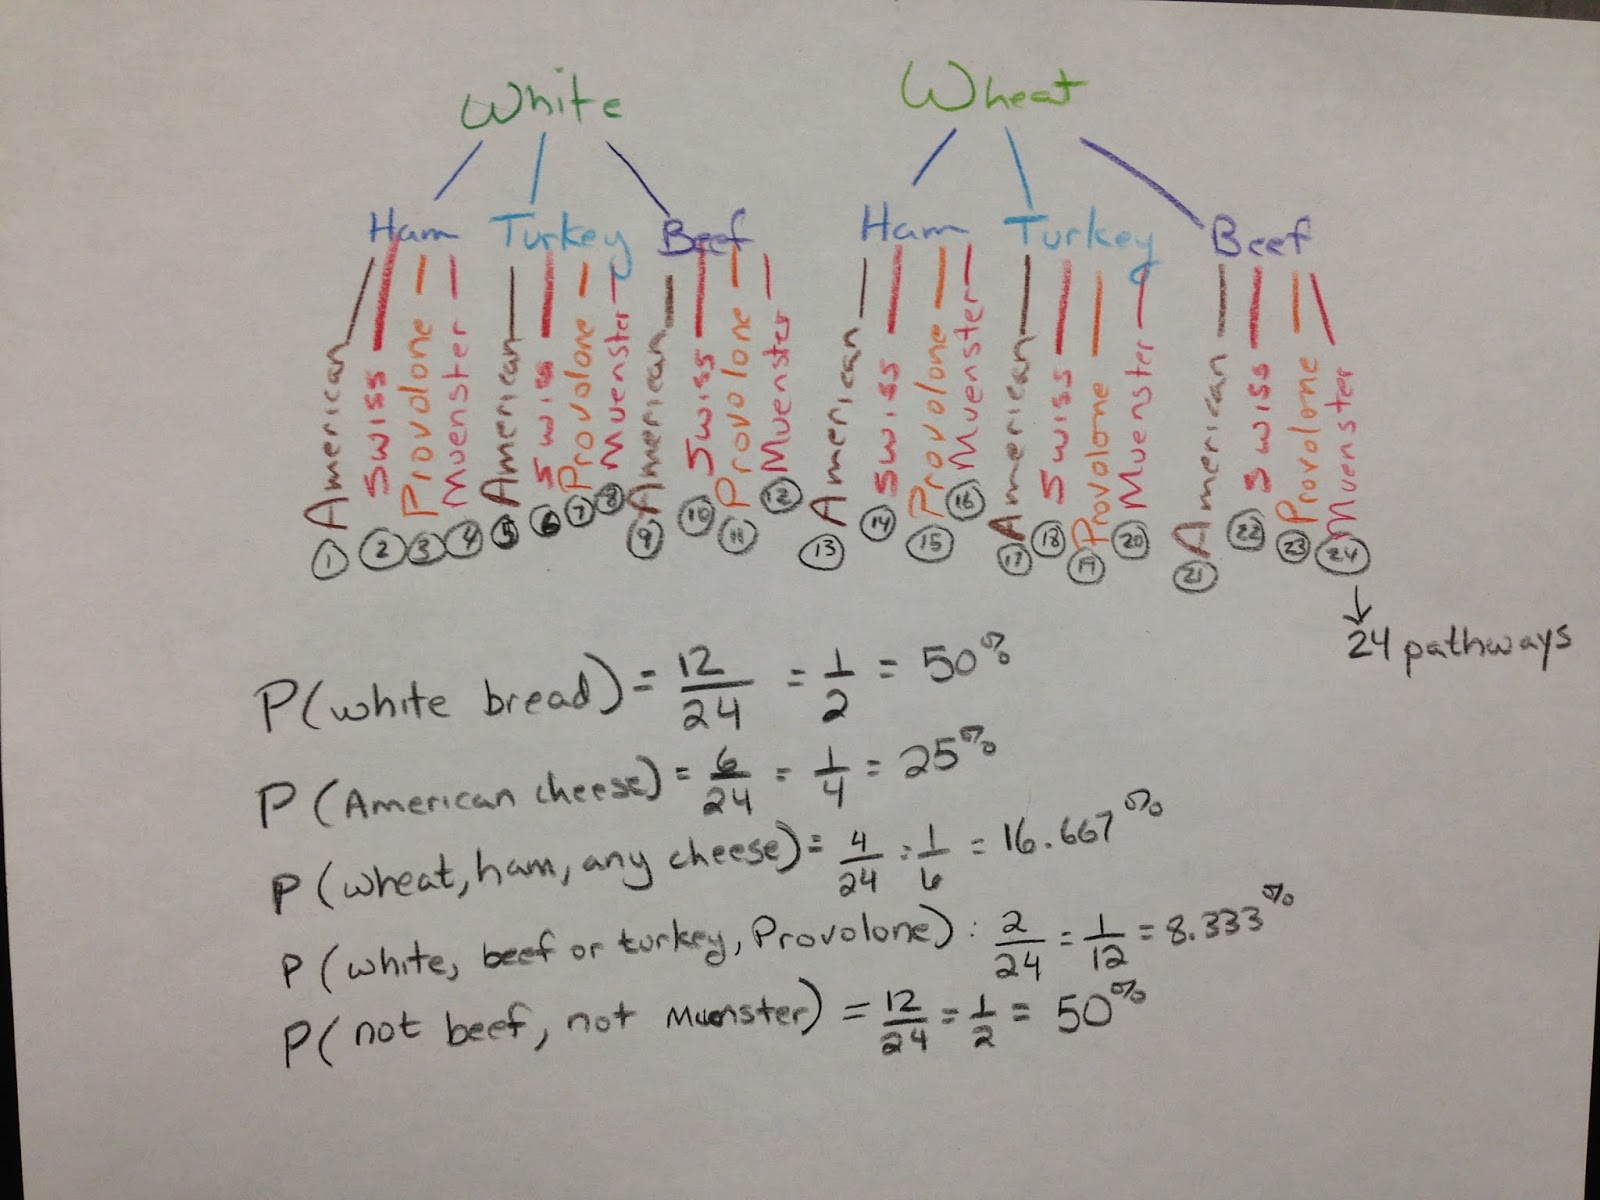 White Wheat
Ham Turkey Beef Ham Turkey Beef
American Swiss Provolone Muenster American Swiss Provolone Muenster American Swiss Provolone Muenster American Swiss Provolone Muenster American Swiss Provolone Muenster American Swiss Provolone Muenster
1 2 3 4 5 6 7 8 9 10 11 12 13 14 15 16 17 18 19 20 21 22 23 24
24 pathways
P(white bread) = 12/24 = 1/2 = 50%
P(American cheese) = 6/24 = 1/4 = 25%
P(wheat, ham, any cheese) = 4/24 = 1/6 = 16.667%
P(white, beef or turkey, Provolone) : 2/24 = 1/12 = 8.333%
P(not beef, not Muenster) = 12/24 = 1/2 = 50%